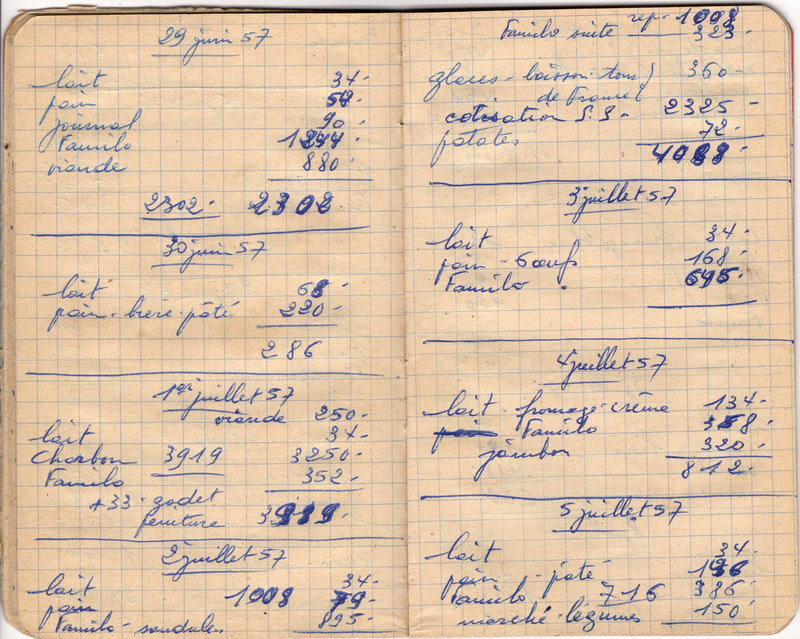 29 juin 57
lait 34-
pain
journal 90-
Familo
viande 880-
2302- 2302
30 juin 57
lait 68
pain - bière - pâté 220-
286
1er juillet 57
viande 250-
lait 34-
Charbon 3919 3250-
Familo 352-
+33- godet
peinture 3919-
2 juillet 57
lait 34-
pain 1008 79-
Familo - sandales 895-
rep. 1008
Familo suite 323-
glaces - boisson - tour 360-
de France)
cotisation S.S. 2325-
patates 72-
4088-
3 juillet 57
lait 34-
pain - 6 oeufs 168-
Familo 695-
4 juillet 57
lait - fromage - crème 134-
Familo 358-
jambon 320-
812-
5 juillet 57
lait 34-
pain - pâté
Familo 716 386-
marché - légumes 150-